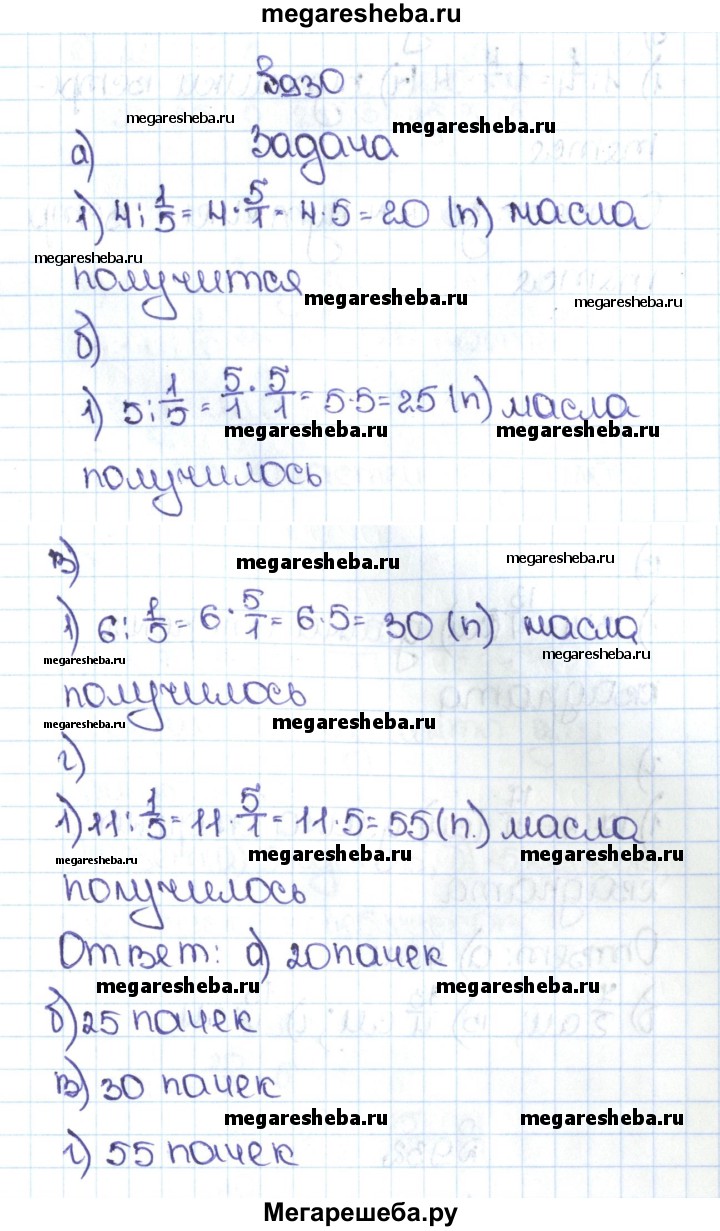 megaresheba.ru
930
megaresheba.ru
megaresheba.ru
а) Задача
1) 4 : 1/5 = 4 · 5/1 = 4 · 5 = 20 (п) масла
megaresheba.ru
получится
megaresheba.ru
megaresheba.ru
б)
1) 5 : 1/5 = 5/1 · 5/1 = 5·5 = 25 (п) масла
megaresheba.ru
megaresheba.ru
получилось
в)
megaresheba.ru
megaresheba.ru
1) 6 : 1/5 = 6 · 5/1 = 6·5 = 30 (п) масла
megaresheba.ru
megaresheba.ru
получилось
megaresheba.ru
megaresheba.ru
г)
1) 11 : 1/5 = 11 · 5/1 = 11·5 = 55 (п.) масла
megaresheba.ru
megaresheba.ru
megaresheba.ru
получилось
Ответ: а) 20 пачек
megaresheba.ru
megaresheba.ru
б) 25 пачек
в) 30 пачек
megaresheba.ru
megaresheba.ru
г) 55 пачек
Мегарешеба.ру